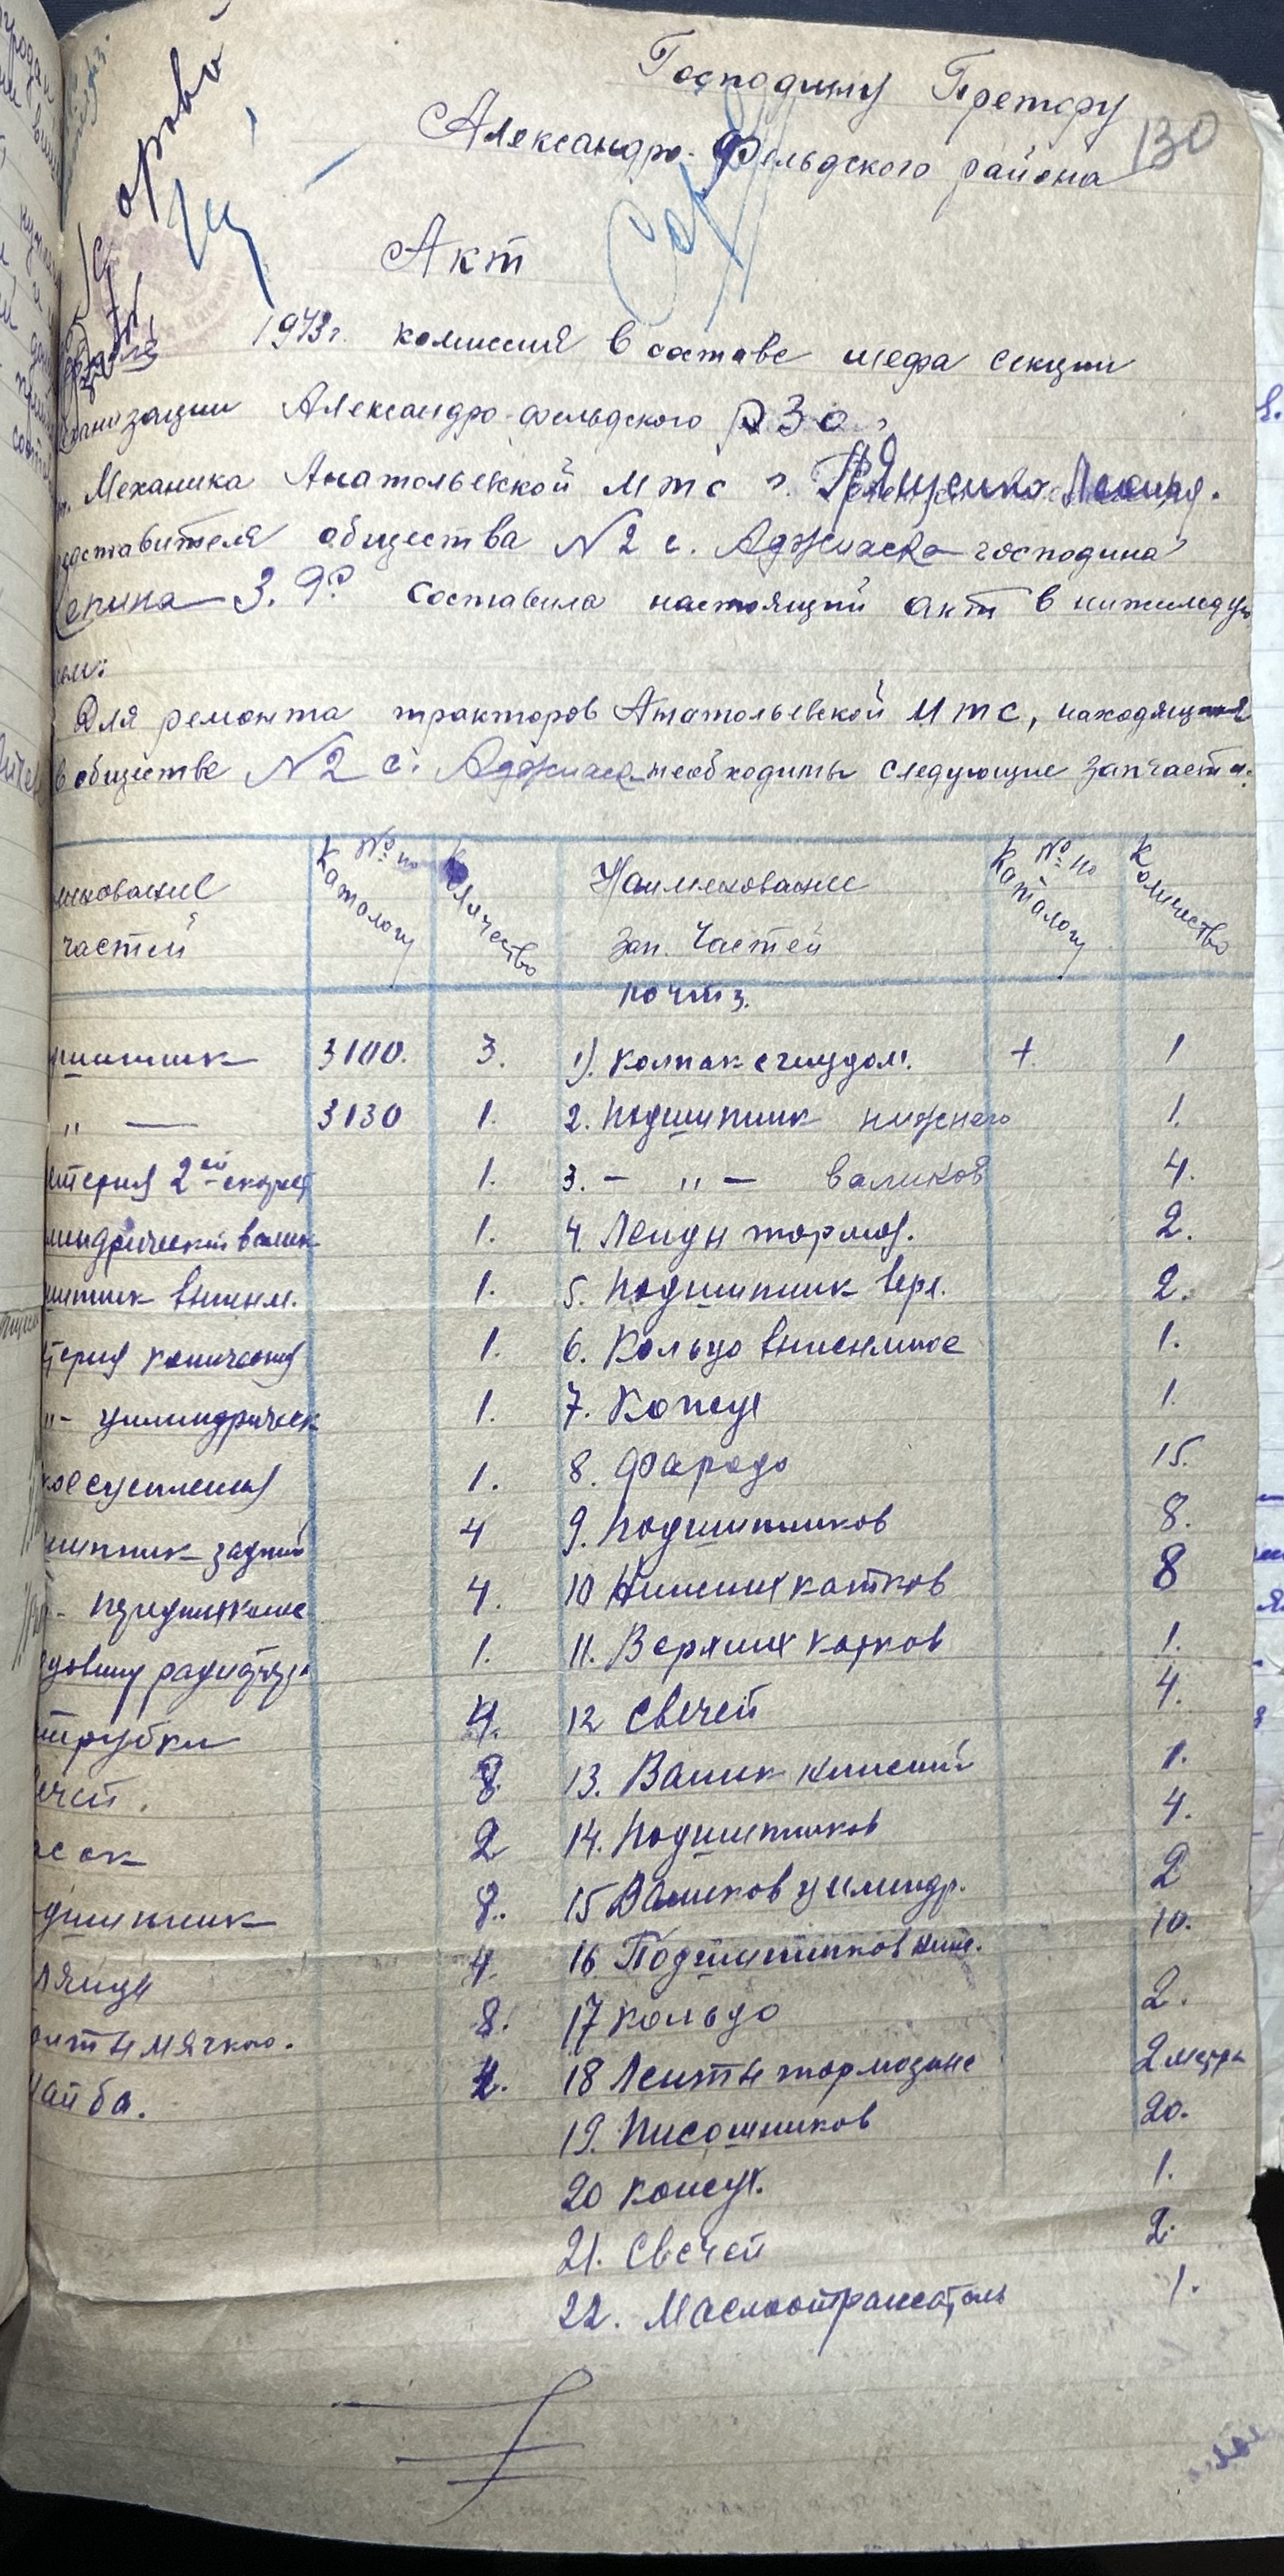 Господину Претору
Александро-Фельдского района
130
Акт
1943г. комиссия в составе шефа секции
анизации Александро-фельдского РЗО
Механика Анатольевской МТС г.
едставителя общества №2 с. Аджиаска господина
З. Я. составила настоящий акт в нижеследую
ем:
Для ремонта тракторов Анатольевской МТС, находящихся
в обществе №2 с. Аджиаска необходимы следующие запчасти:
енование частей | № по каталогу | Количество | Наименование зап. частей | № по каталогу | Количество
по ЧТЗ.
дшипник 3100. 3. 1). Колпак с гнездом. + 1
" — 3130 1. 2. Подшипник нижнего 1.
естерня 2ой скорост 1. 3. — " — валиков 4.
линдрический валик 1. 4. Ленды тормоз. 2.
шипник выжим. 1. 5. Подшипник верх. 2.
терня коническая 1. 6. Кольцо выжимное 1.
" - цилиндрическ 1. 7. Кожух 1.
кое сцепления 1. 8. Фародо 15.
шипник задний 4 9. Подшипников 8.
- передних колес 4. 10 Нижних катков 8
довину радиатора 1. 11. Верхних катков 1.
трубки 4. 12 Свечей 4.
ечей. 8. 13. Валик нижний 1.
сок 2 14. Подшипников 4.
дшипник 8. 15 Валиков цилиндр. 2
лянцы 4. 16. Подшипников ниж. 10.
олты мягкие. 8. 17 Кольцо 2.
айба. 2. 18 Ленты тормозные 2 метра
19. Письошников 20.
20 Кожух. 1.
21. Свечей 2.
22. Маслоотражатель 1.